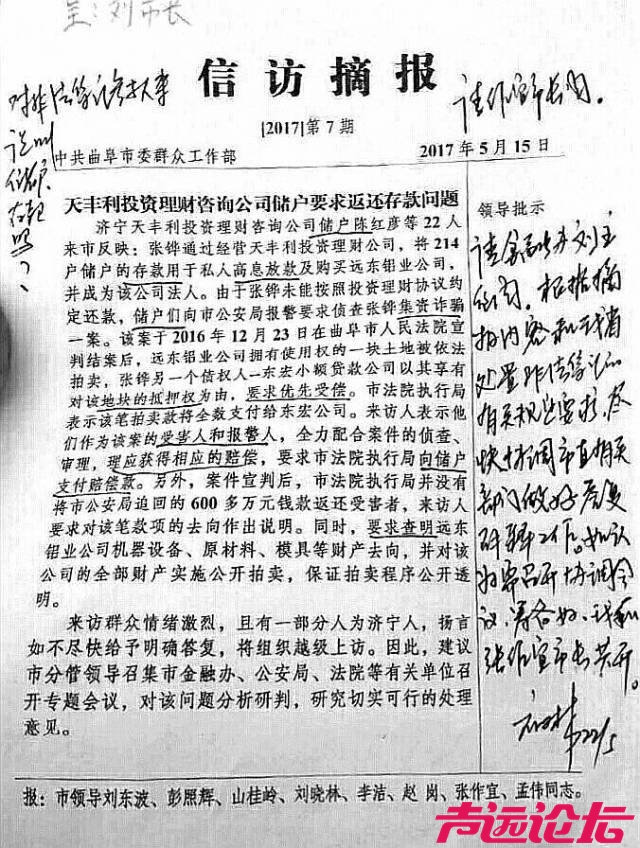 呈：刘市长
信访摘报
[2017]第7期
中共曲阜市委群众工作部
2017年5月15日
请作宣市长阅。
天丰利投资理财咨询公司储户要求返还存款问题
济宁天丰利投资理财咨询公司储户陈红彦等22人
来市反映：张铧通过经营天丰利投资理财公司，将214
户储户的存款用于私人高息放款及购买远东铝业公司，
并成为该公司法人。由于张铧未能按照投资理财协议约
定还款，储户们向市公安局报警要求侦查张铧集资诈骗
一案。该案于2016年12月23日在曲阜市人民法院宣
判结案后，远东铝业公司拥有使用权的一块土地被依法
拍卖，张铧另一个债权人—东宏小额贷款公司以其享有
对该地块的抵押权为由，要求优先受偿。市法院执行局
表示该笔拍卖款将全数支付给东宏公司。来访人表示他
们作为该案的受害人和报警人，全力配合案件的侦查、
审理，理应获得相应的赔偿，要求市法院执行局向储户
支付赔偿款。另外，案件宣判后，市法院执行局并没有
将市公安局追回的600多万元钱款返还受害者，来访人
要求对该笔款项的去向作出说明。同时，要求查明远东
铝业公司机器设备、原材料、模具等财产去向，并对该
公司的全部财产实施公开拍卖，保证拍卖程序公开透
明。
来访群众情绪激烈，且有一部分人为济宁人，扬言
如不尽快给予明确答复，将组织越级上访。因此，建议
市分管领导召集市金融办、公安局、法院等有关单位召
开专题会议，对该问题分析研判，研究切实可行的处理
意见。
领导批示
请金融办刘主
任阅。根据摘
报内容和我省
处置非法集资的
有关规定要求，尽
快协调市直有关
部门做好答复
研释工作。如认
为需召开协调会
议，筹备好，我和
张作宣市长共开。
22/5
报：市领导刘东波、彭照辉、山桂岭、刘晓林、李洁、赵岗、张作宜、孟伟同志。
声远论坛